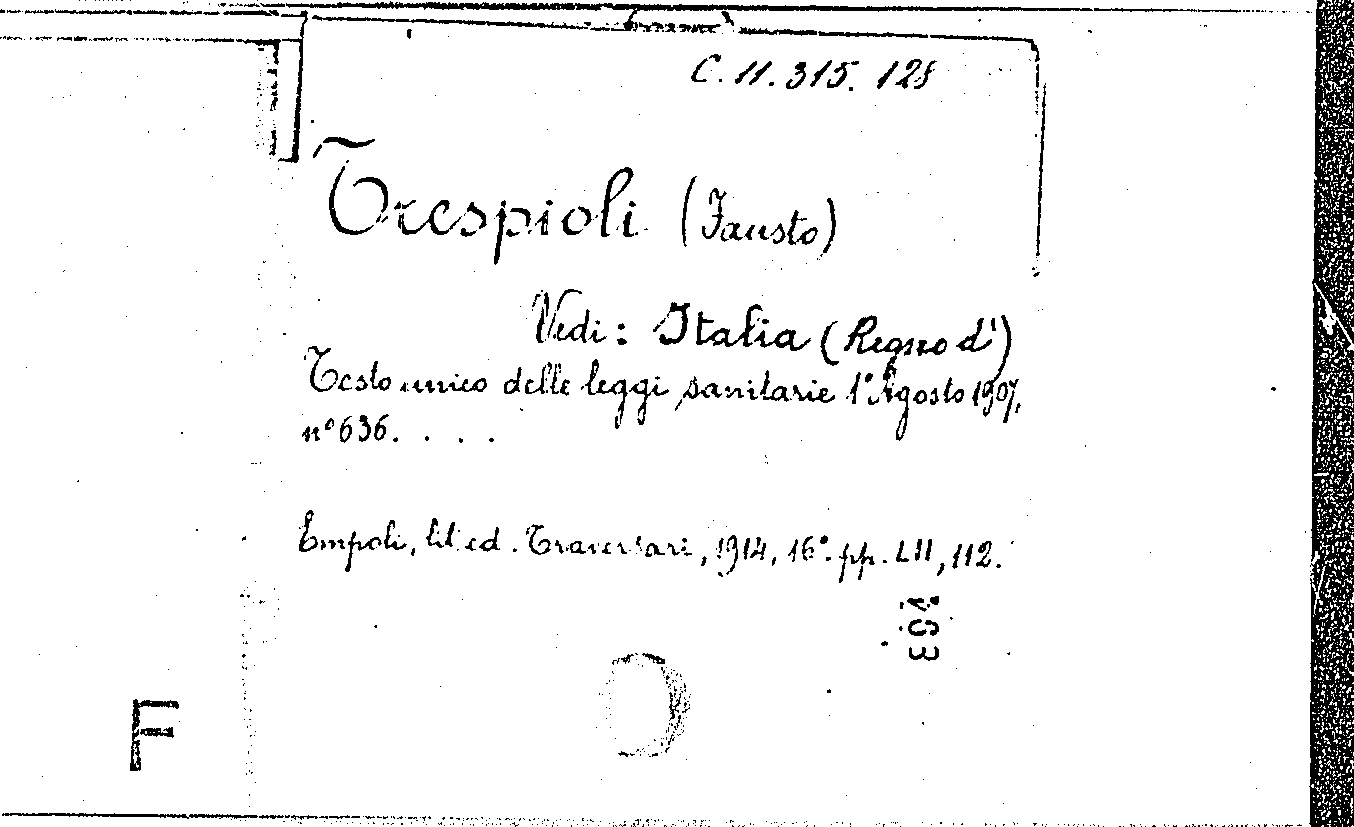 C. 11. 315. 128
Trespioli (Fausto)
Vedi: Italia (Regno d')
Testo unico delle leggi sanitarie 1° Agosto 1907,
n° 636. . . . .
Empoli, tit. ed. Traversari, 1914, 16°. pp. LII, 112.
F